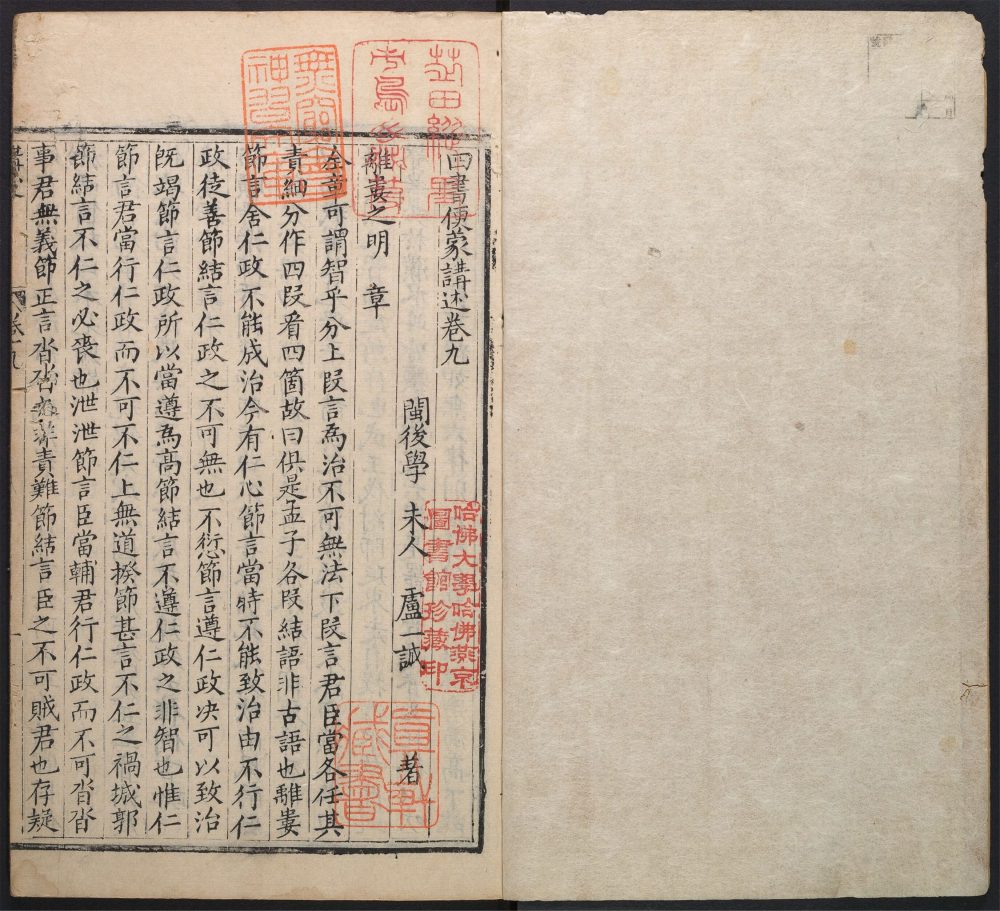 四書便蒙講述卷九
閩後學 未人 盧一誠 著
離婁之明 章
全章可謂智乎分上段言為治不可無法下段言君臣當各任其
責細分作四段看四箇故曰俱是孟子各段結語非古語也離婁
節言舍仁政不能成治今有仁心節言當時不能致治由不行仁
政徒善節結言仁政之不可無也不愆節言遵仁政决可以致治
旣竭節言仁政所以當遵為高節結言不遵仁政之非智也惟仁
節言君當行仁政而不可不仁上無道揆節甚言不仁之禍城郭
節結言不仁之必喪也泄泄節言臣當輔君行仁政而不可沓沓
事君無義節正言沓沓之非責難節結言臣之不可賊君也存疑
卷九
哈佛大學哈佛燕京
圖書館珍藏印
藏書